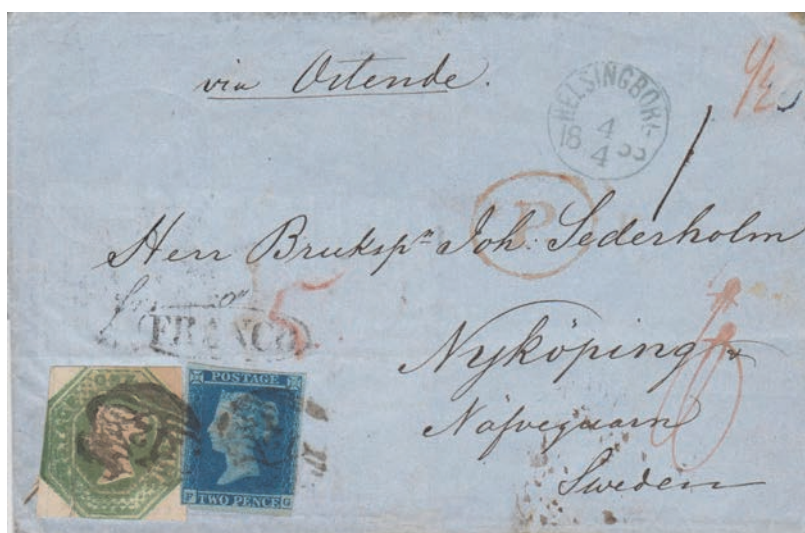 via Ostende.
HELSINGBORG
4
18 53
4
P
Herr Brukspn Joh: Sederholm
5
FRANCO
Nyköping
Näfvequarn
Sweden
POSTAGE
P TWO PENCE G